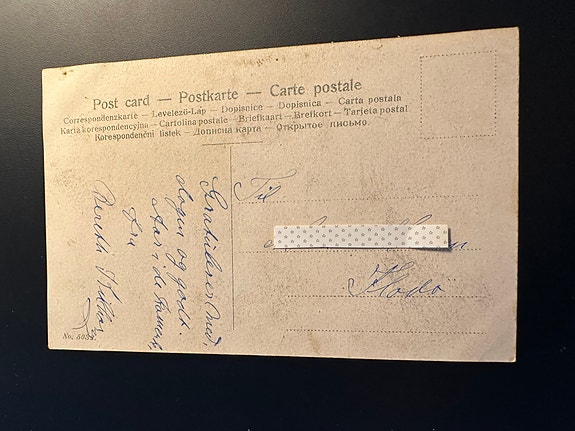 Post card — Postkarte — Carte postale
Correspondenzkarte — Levelező-Lap — Dopisnice — Dopisnica — Carta postala
Karta korespondencyjna — Cartolina postale — Briefkaart — Brefkort — Tarjeta postal
Korespondenční lístek — Дописна карта — Открытое письмо.
Gratulerer med
dagen og godt
Aar i de
fra
Bereth
Til
No. 5033.